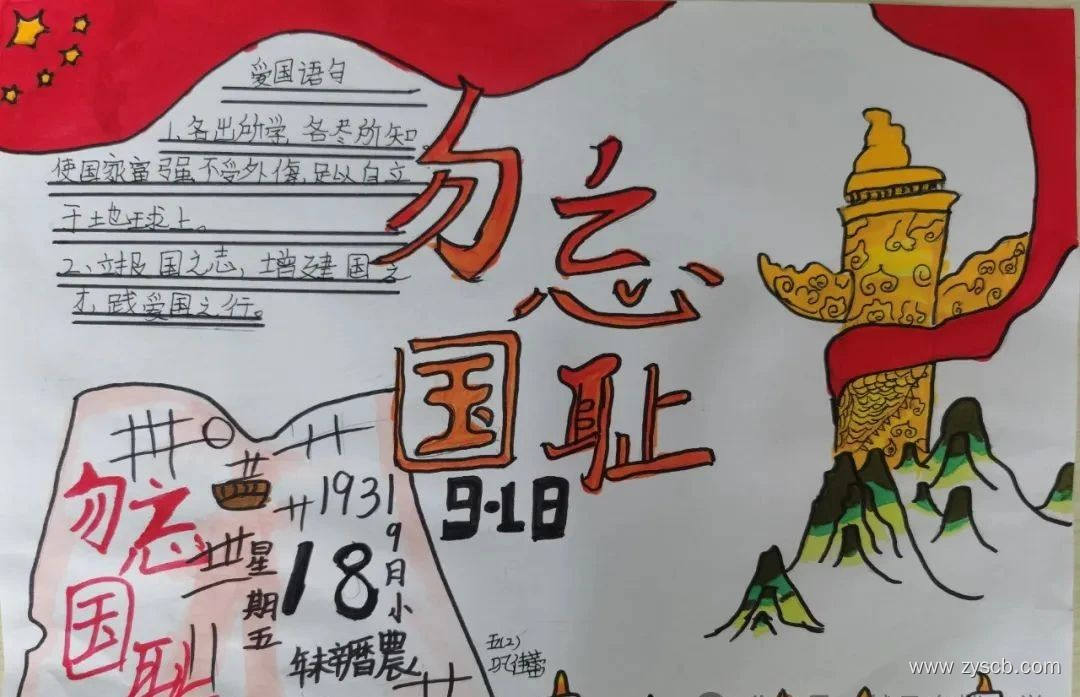 爱国语句
1、各出所学,各尽所知,
使国家富强不受外侮,足以自立
于地球上。
2、立报国之志,增建国之
才,践爱国之行。
勿忘
国耻
9·18
勿忘
国耻
星期五
1931
9月小
18
年未辛曆農
五(2)
www.zyscb.com